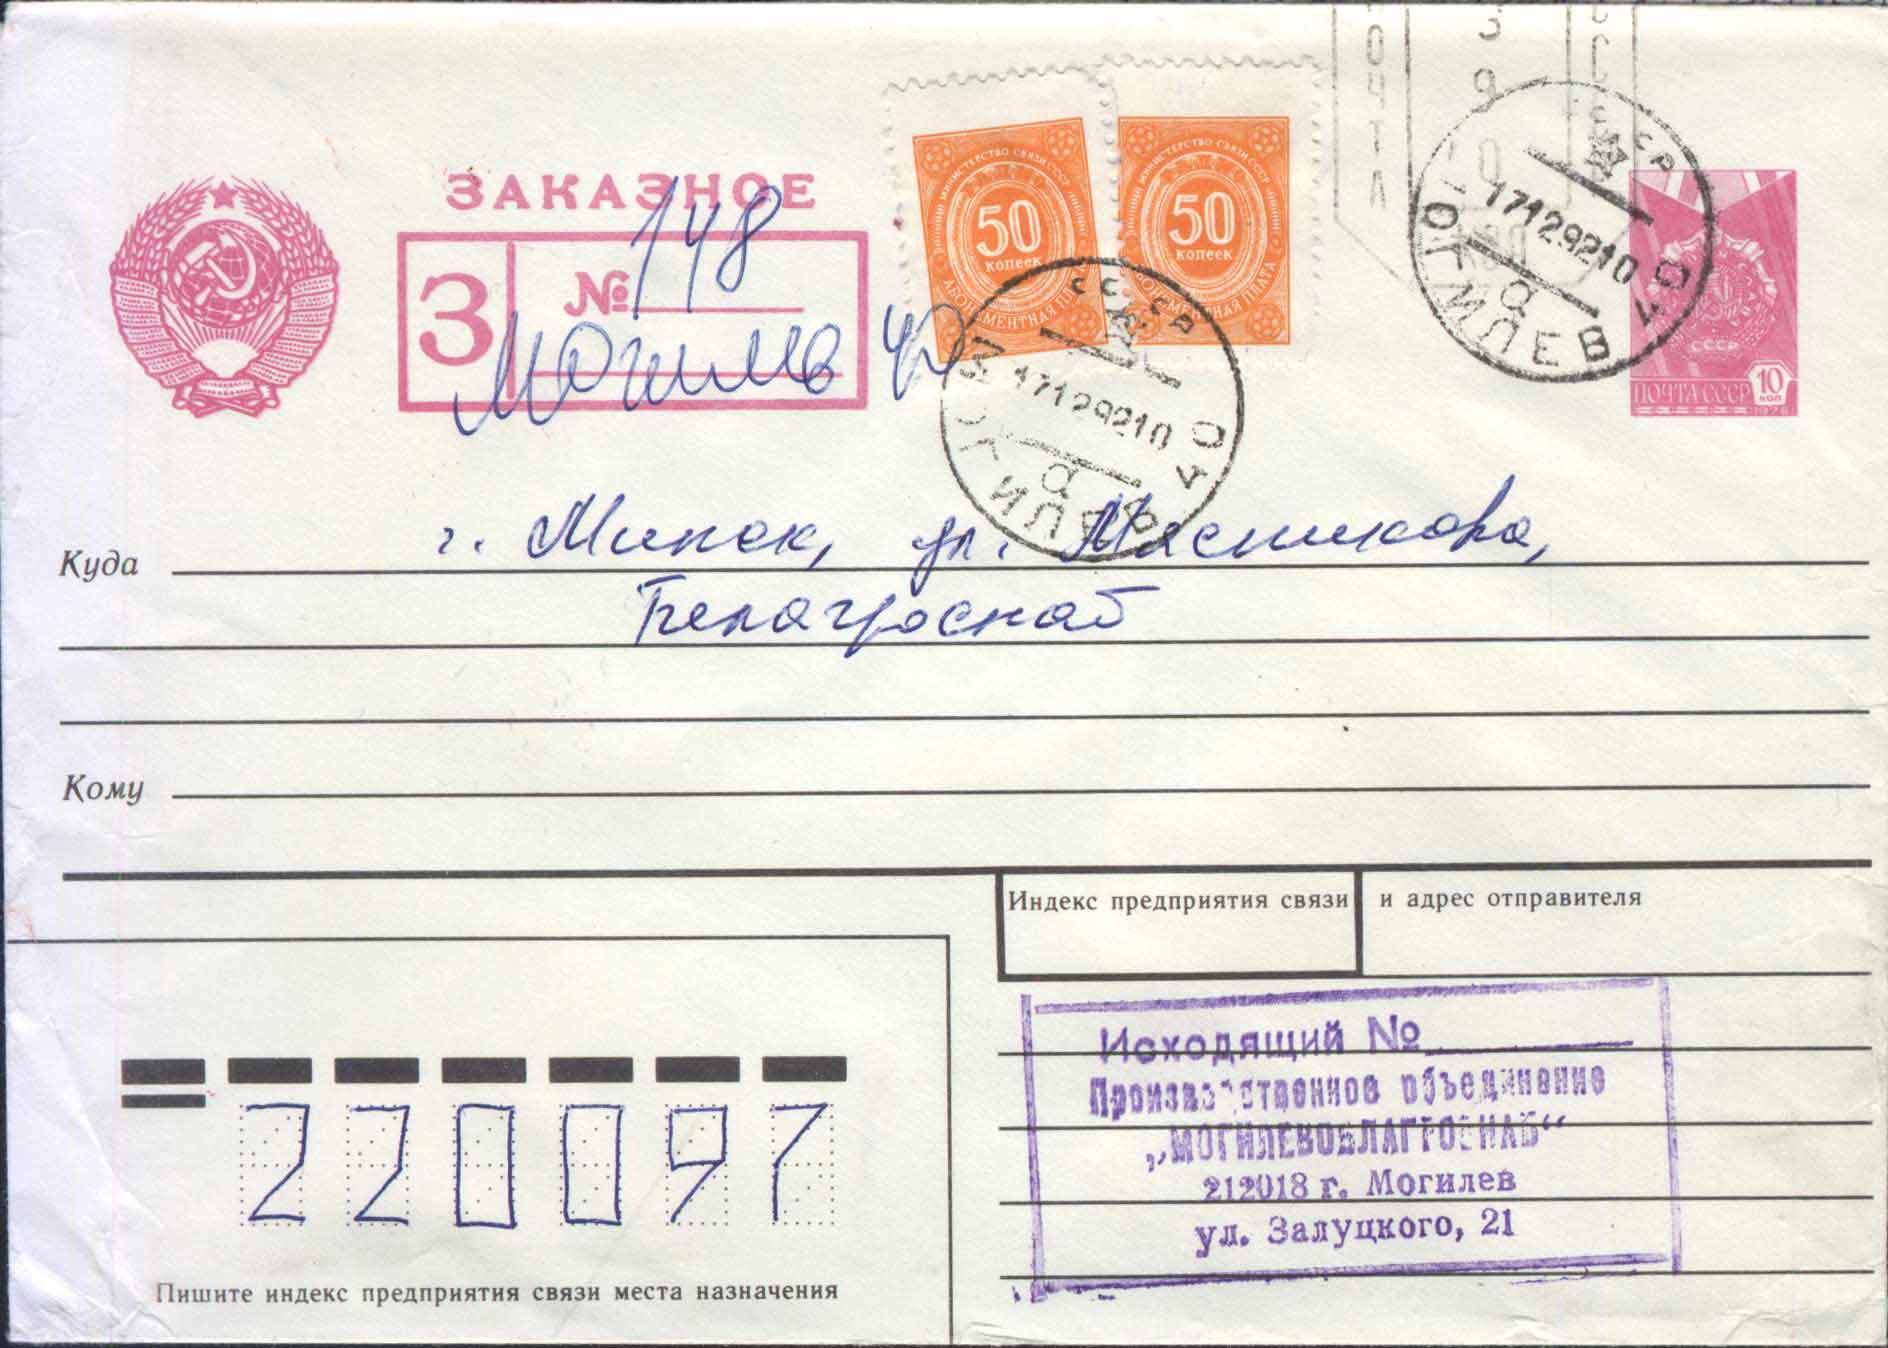 ПОЧТА
ЗАКАЗНОЕ
З № 148
Могилев 40
МИНИСТЕРСТВО СВЯЗИ СССР
50
копеек
АБОНЕМЕНТНАЯ ПЛАТА
МИНИСТЕРСТВО СВЯЗИ СССР
50
копеек
АБОНЕМЕНТНАЯ ПЛАТА
СССР
ПОЧТА СССР 10 коп
СССР
17129210
а
МОГИЛЕВ 40
СССР
17129210
а
МОГИЛЕВ 40
Куда г. Минск, ул. Мясникова,
Белагроснаб
Кому
Индекс предприятия связи и адрес отправителя
Исходящий №
Производственное объединение
„МОГИЛЕВОБЛАГРОСНАБ“
212018 г. Могилев
ул. Залуцкого, 21
220097
Пишите индекс предприятия связи места назначения